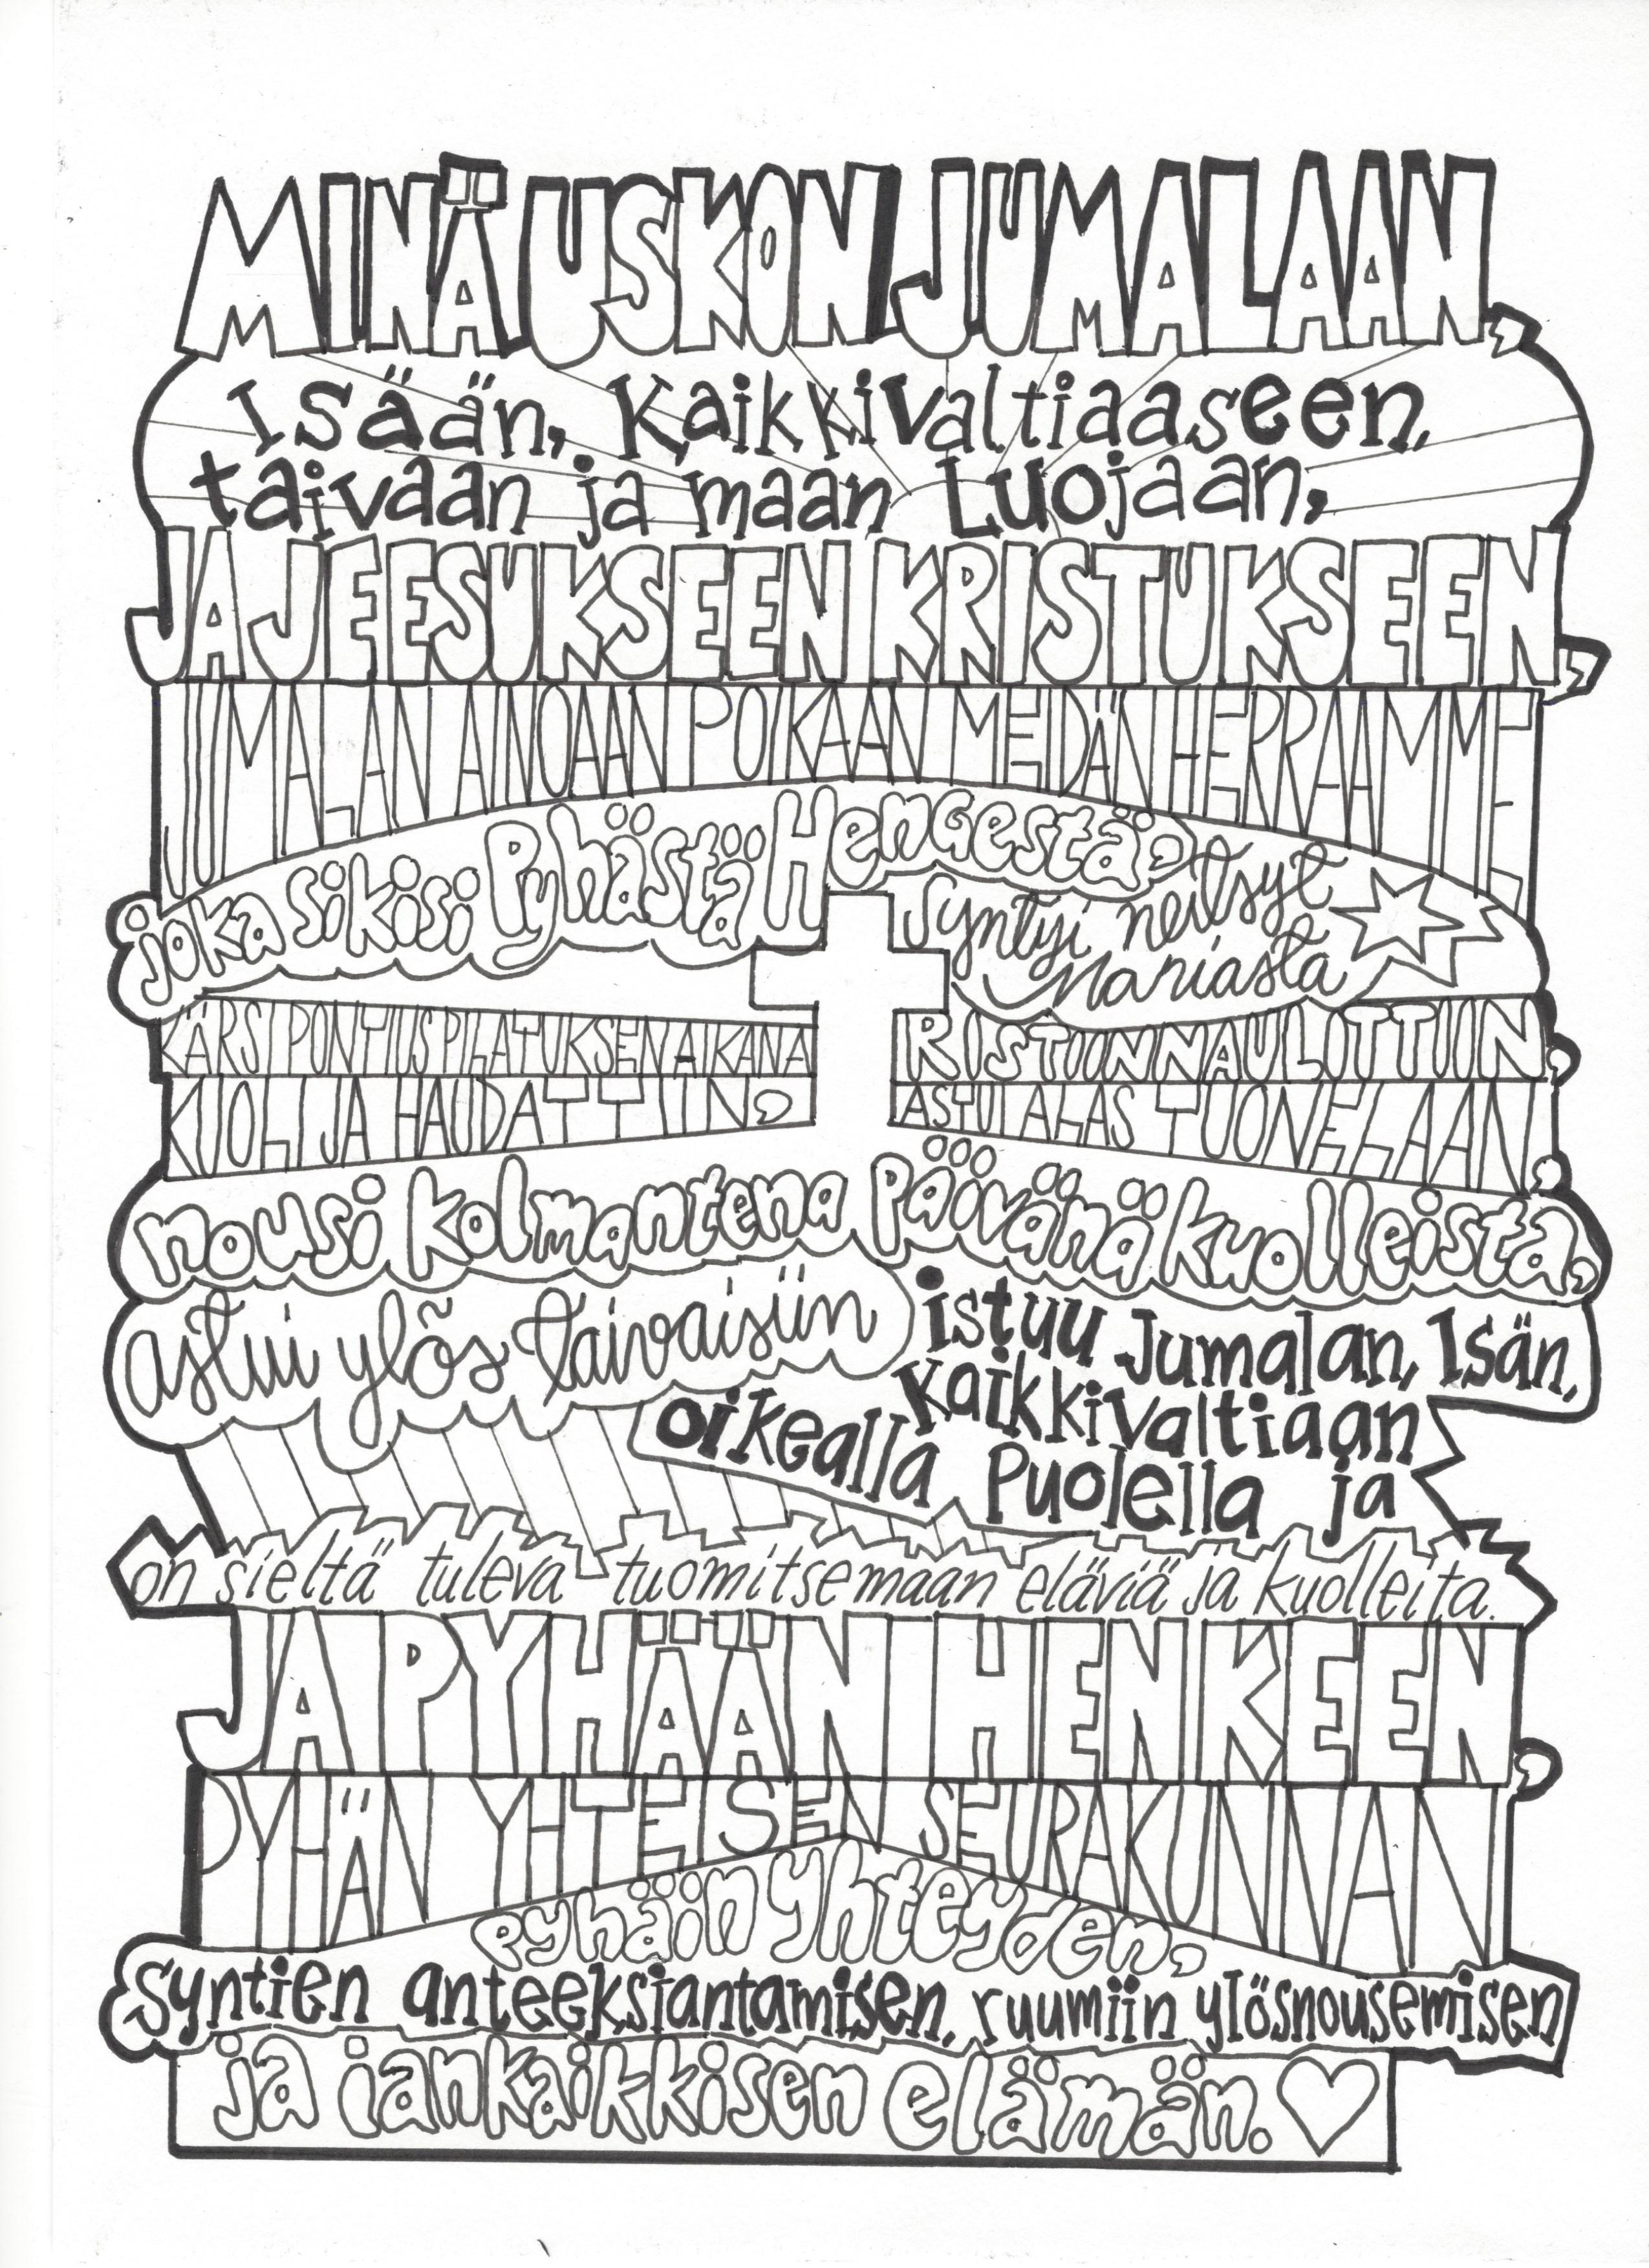 MINÄ USKON JUMALAAN,
Isään, Kaikkivaltiaaseen,
taivaan ja maan Luojaan,
JA JEESUKSEEN KRISTUKSEEN,
JUMALAN AINOAAN POIKAAN MEIDÄN HERRAAMME
joka sikisi Pyhästä Hengestä,
syntyi neitsyt
Mariasta
KÄRSI PONTIUS PILATUKSEN AIKANA
RISTIINNAULITTIIN,
KUOLI JA HAUDATTIIN,
ASTUI ALAS TUONELAAN,
nousi kolmantena päivänä kuolleista,
astui ylös taivaisiin
istuu Jumalan, Isän,
Kaikkivaltiaan
oikealla puolella ja
on sieltä tuleva tuomitsemaan eläviä ja kuolleita.
JA PYHÄÄN HENKEEN,
PYHÄN YHTEISEN SEURAKUNNAN
pyhäin yhteyden,
syntien anteeksiantamisen, ruumiin ylösnousemisen
ja iankaikkisen elämän.